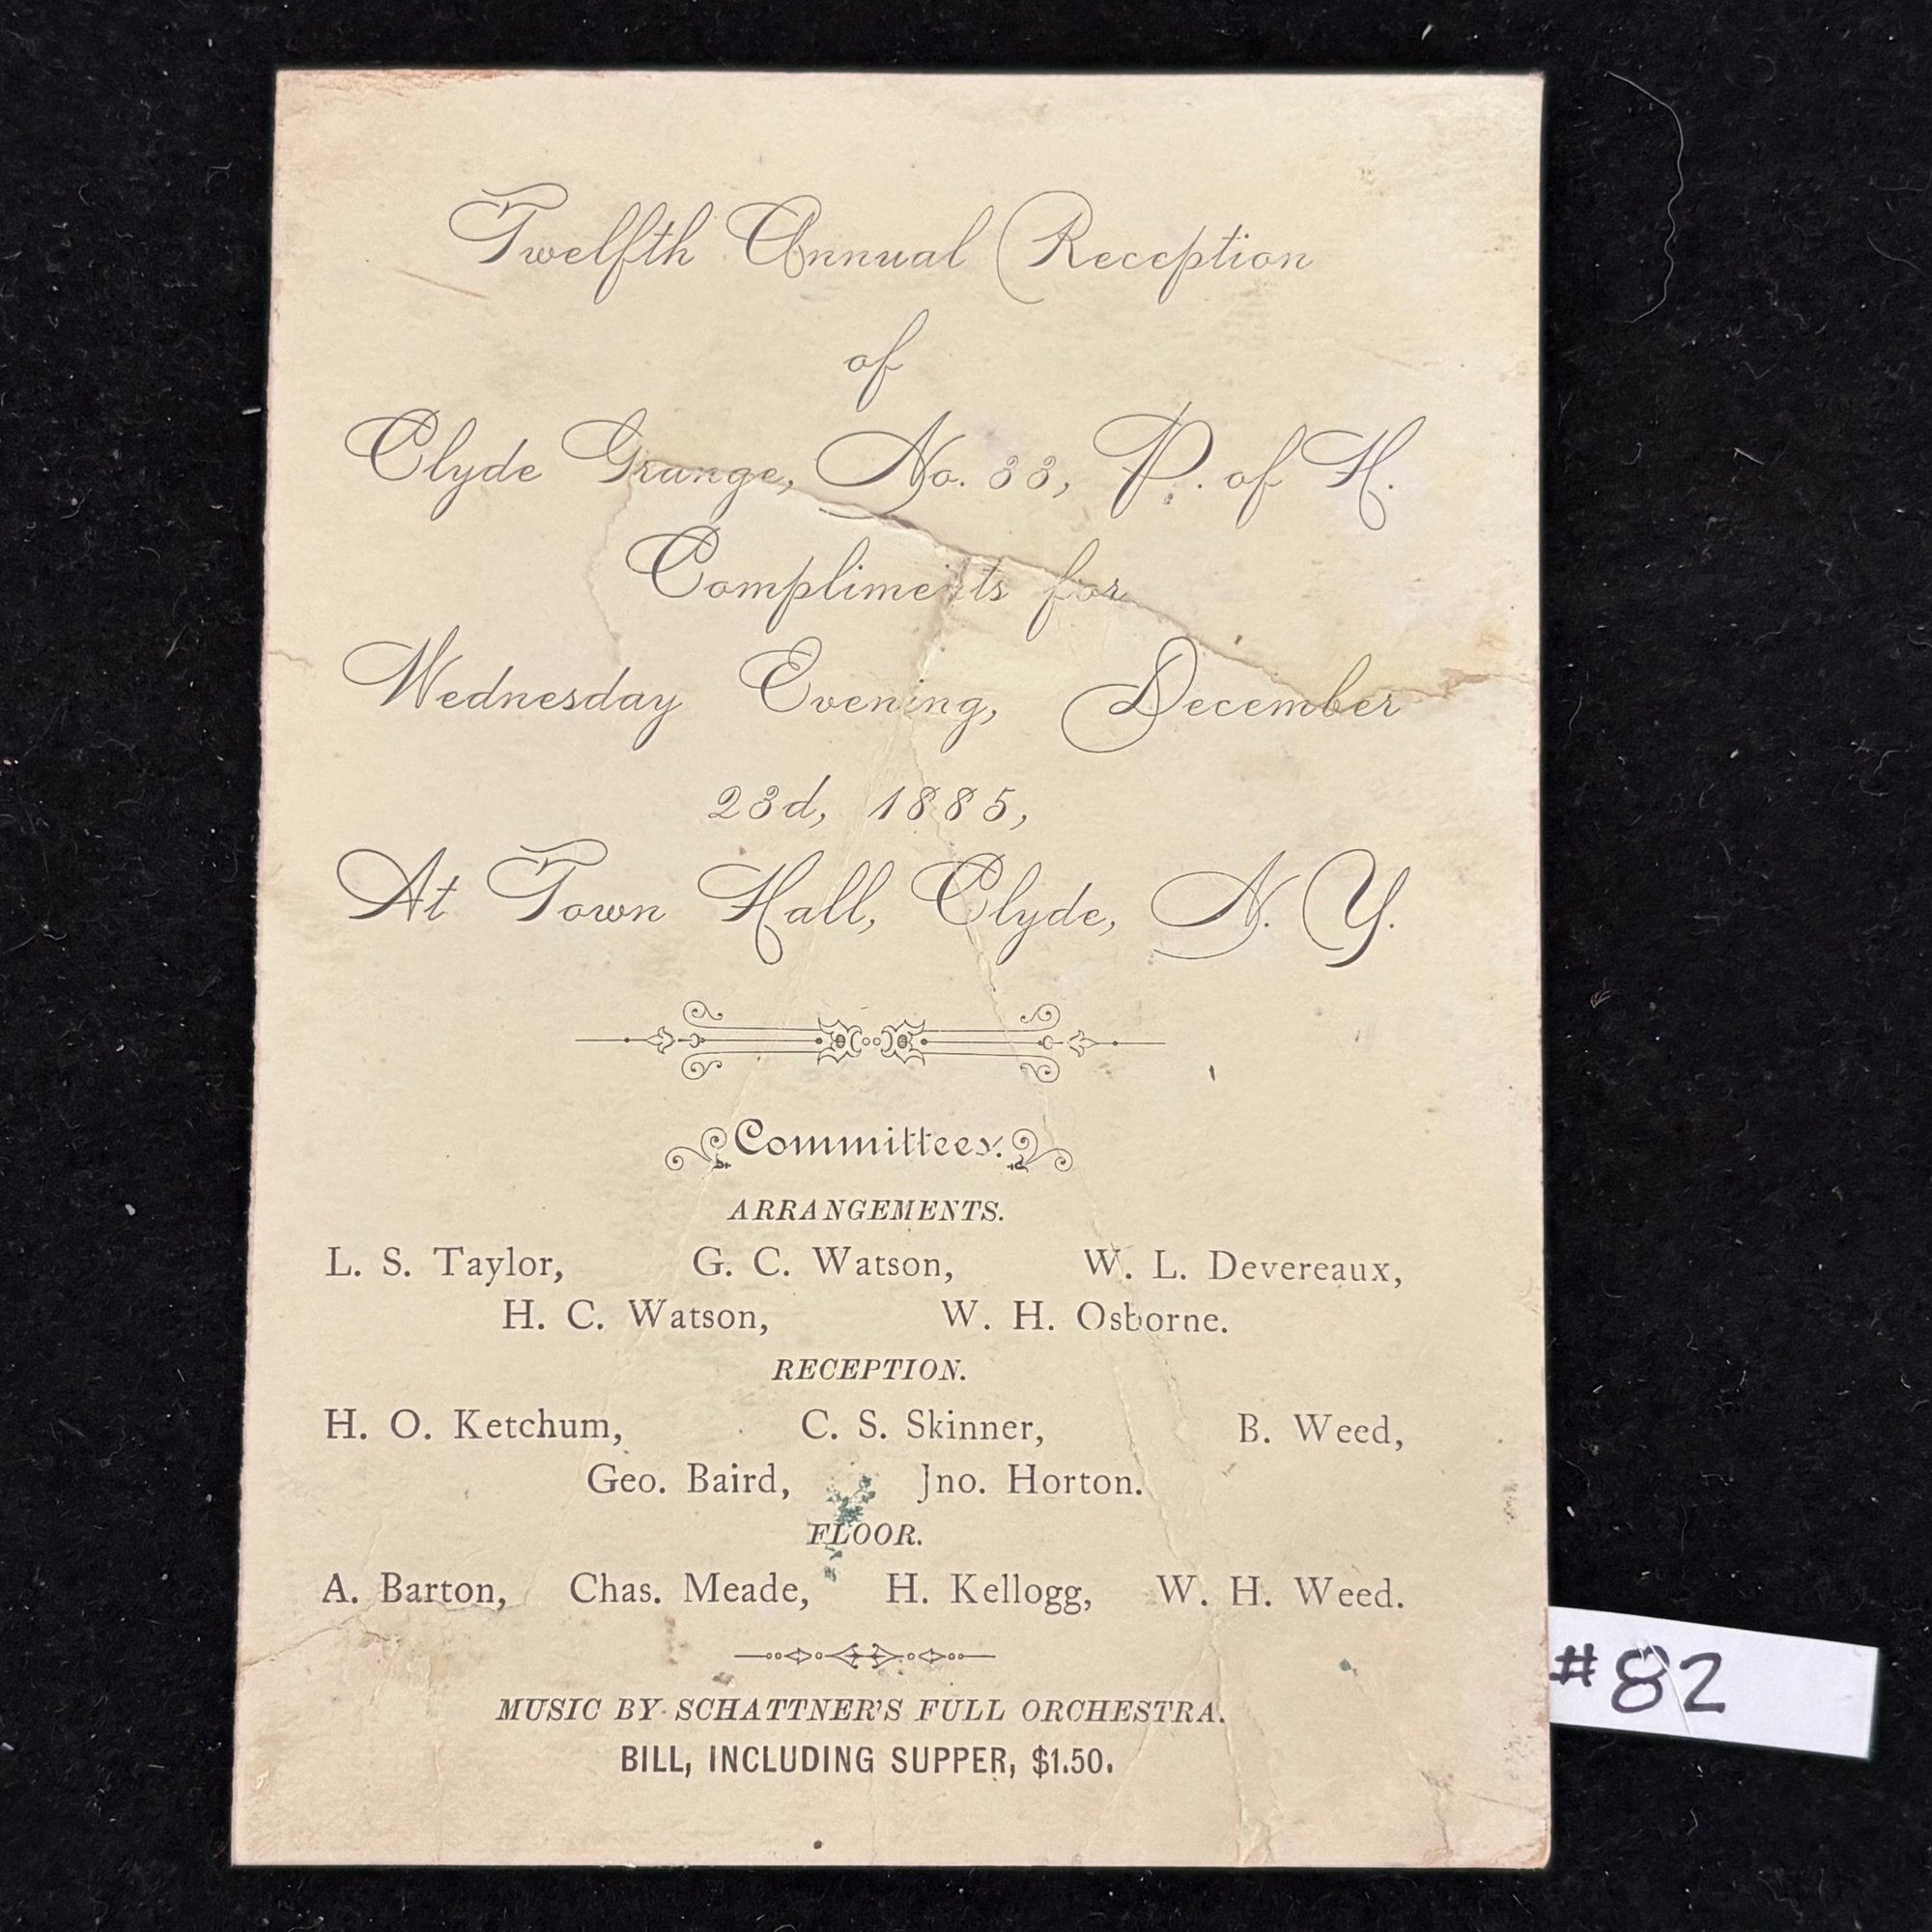 Twelfth Annual Reception
of
Clyde Grange, No. 33, P. of H.
Compliments for
Wednesday Evening, December
23d, 1885,
At Town Hall, Clyde, N. Y.
Committees.
ARRANGEMENTS.
L. S. Taylor, G. C. Watson, W. L. Devereaux,
H. C. Watson, W. H. Osborne.
RECEPTION.
H. O. Ketchum, C. S. Skinner, B. Weed,
Geo. Baird, Jno. Horton.
FLOOR.
A. Barton, Chas. Meade, H. Kellogg, W. H. Weed.
MUSIC BY SCHATTNER'S FULL ORCHESTRA.
BILL, INCLUDING SUPPER, $1.50.
#82